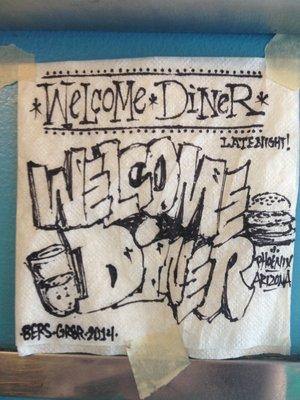 *WELCOME*DINER*
LATENIGHT!
WELCOME
DINER
PHOENIX
ARIZONA
·BERS·GR8R·2014·